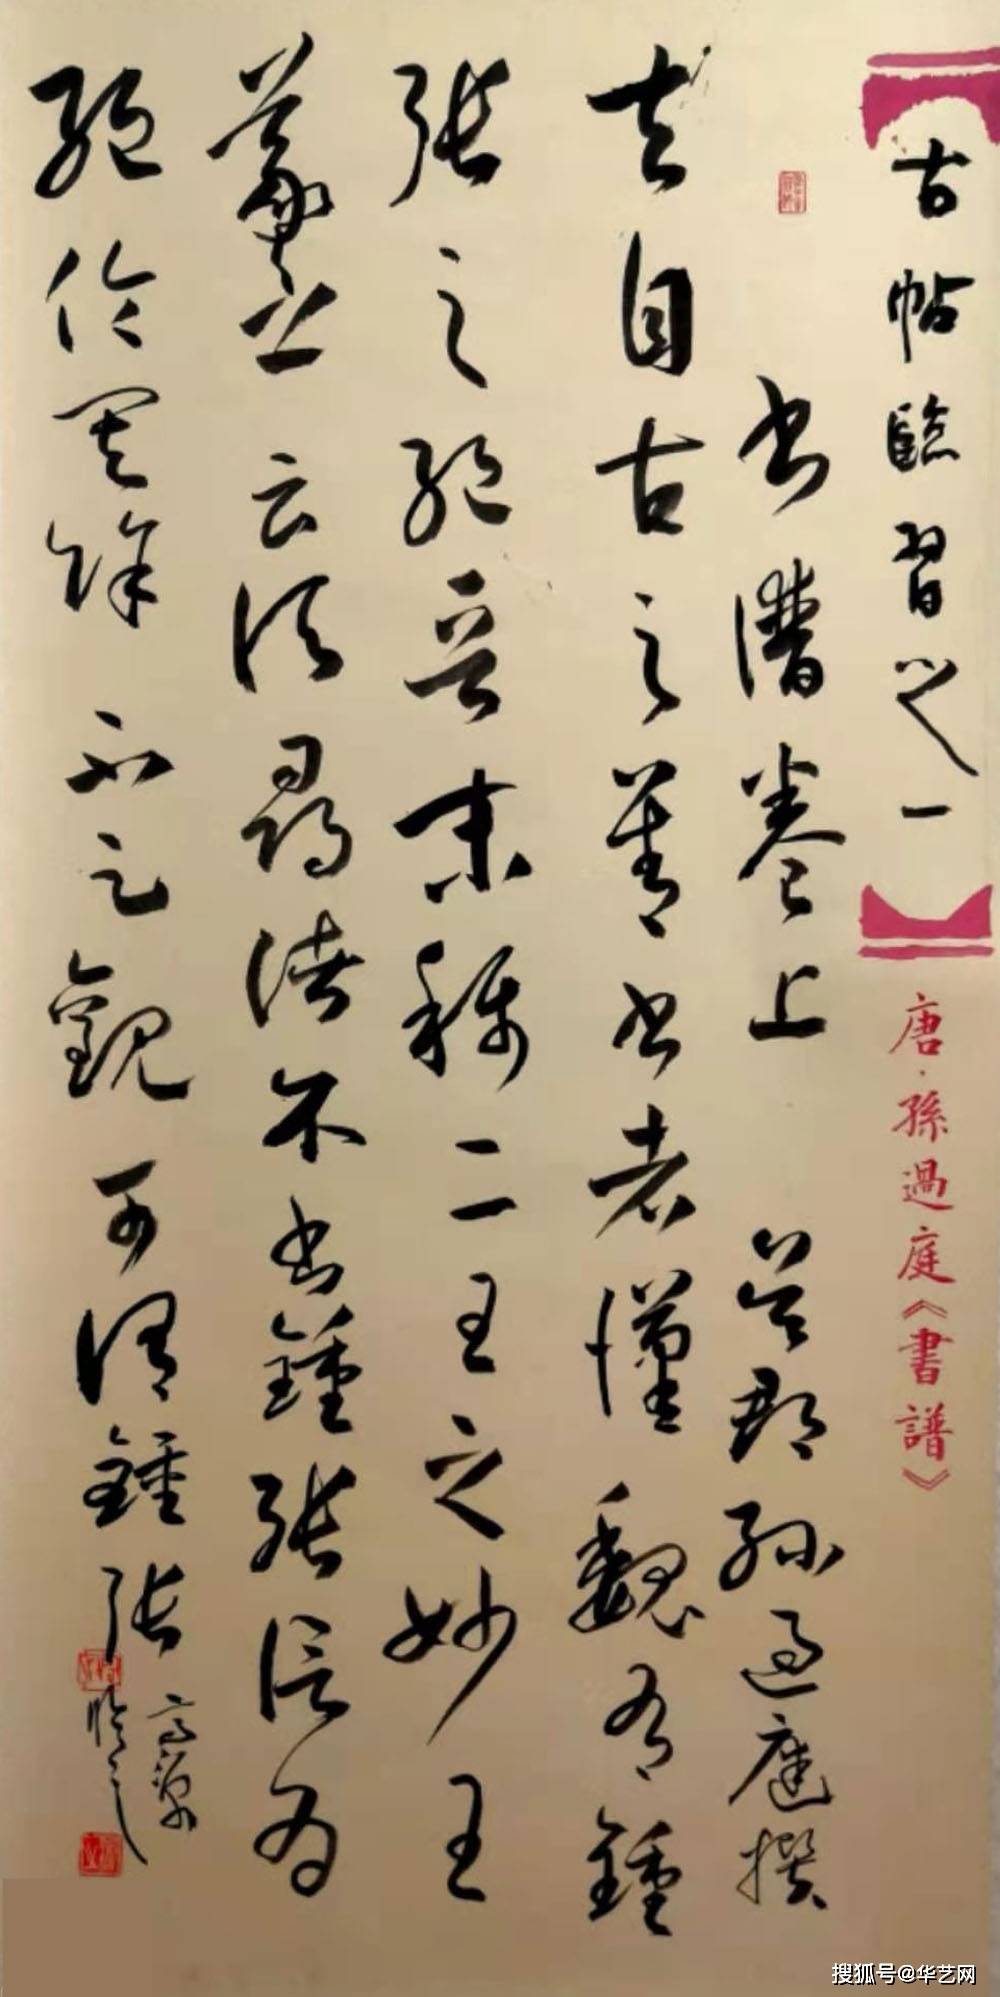 古帖臨習之一
唐·孫過庭《書譜》
書譜卷上 吳郡孫過庭撰
夫自古之善書者漢魏有鍾
張之絕晉末稱二王之妙王
羲之云頃尋諸不書鍾張信為
絕倫其餘不足觀可謂鍾張
臨之
搜狐号@华艺网